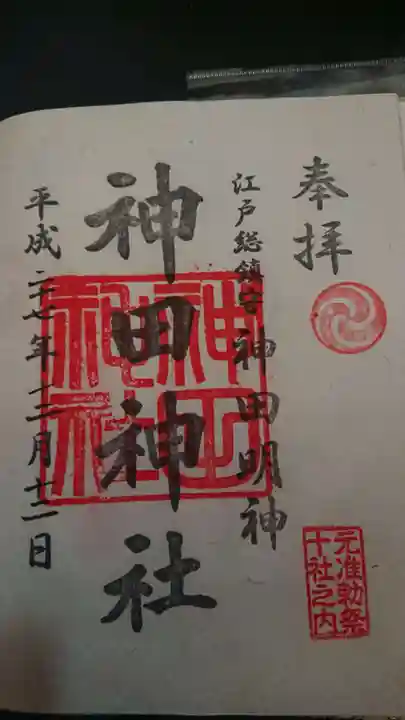 奉拝
江戸総鎮守 神田明神
神田神社
平成二十七年十二月十二日
神田神社
元准勅祭
十社之内